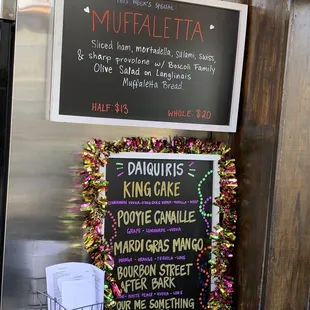 This Week's Special
MUFFALETTA
Sliced ham, mortadella, Salami, Swiss,
& sharp provolone w/ Boscoli Family
Olive Salad on Langlinais
Muffaletta Bread.
HALF: $13 WHOLE: $20
DAIQUIRIS
KING CAKE
POOYIE CANAILLE
GRAPE · LEMONADE · VODKA
MARDI GRAS MANGO
MANGO · ORANGE
BOURBON STREET
AFTER BAR
WHITE PEACH · VODKA
OUR ME SOMETHING